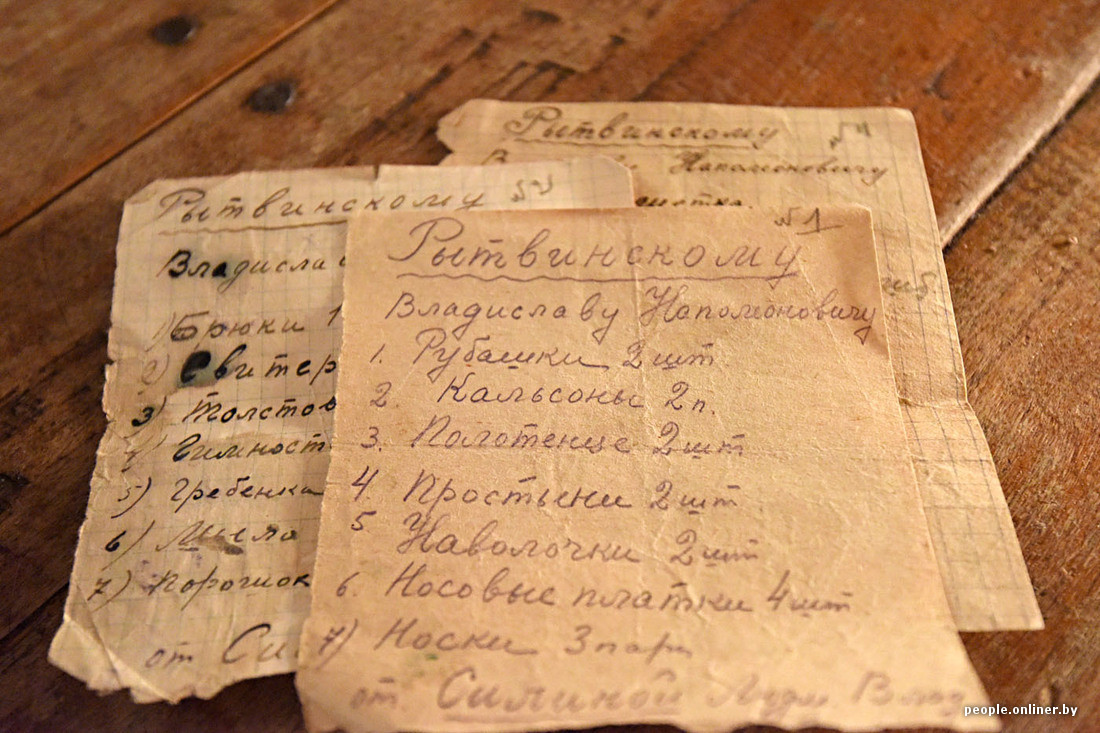 Рытвинскому
Напомоновичу
Рытвинскому
Владисла
1) Брюки 1
2) Свитер
3) Толстов
4) Гимност
5) Гребенка
6) Мыло
7) Порошок
от Си
№1
Рытвинскому
Владиславу Напомоновичу
1. Рубашки 2 шт.
2. Кальсоны 2 п.
3. Полотенце 2 шт
4. Простыни 2 шт
5 Наволочки 2 шт
6. Носовые платки 4 шт
7) Носки 3 пары
от Силиной
people.onliner.by